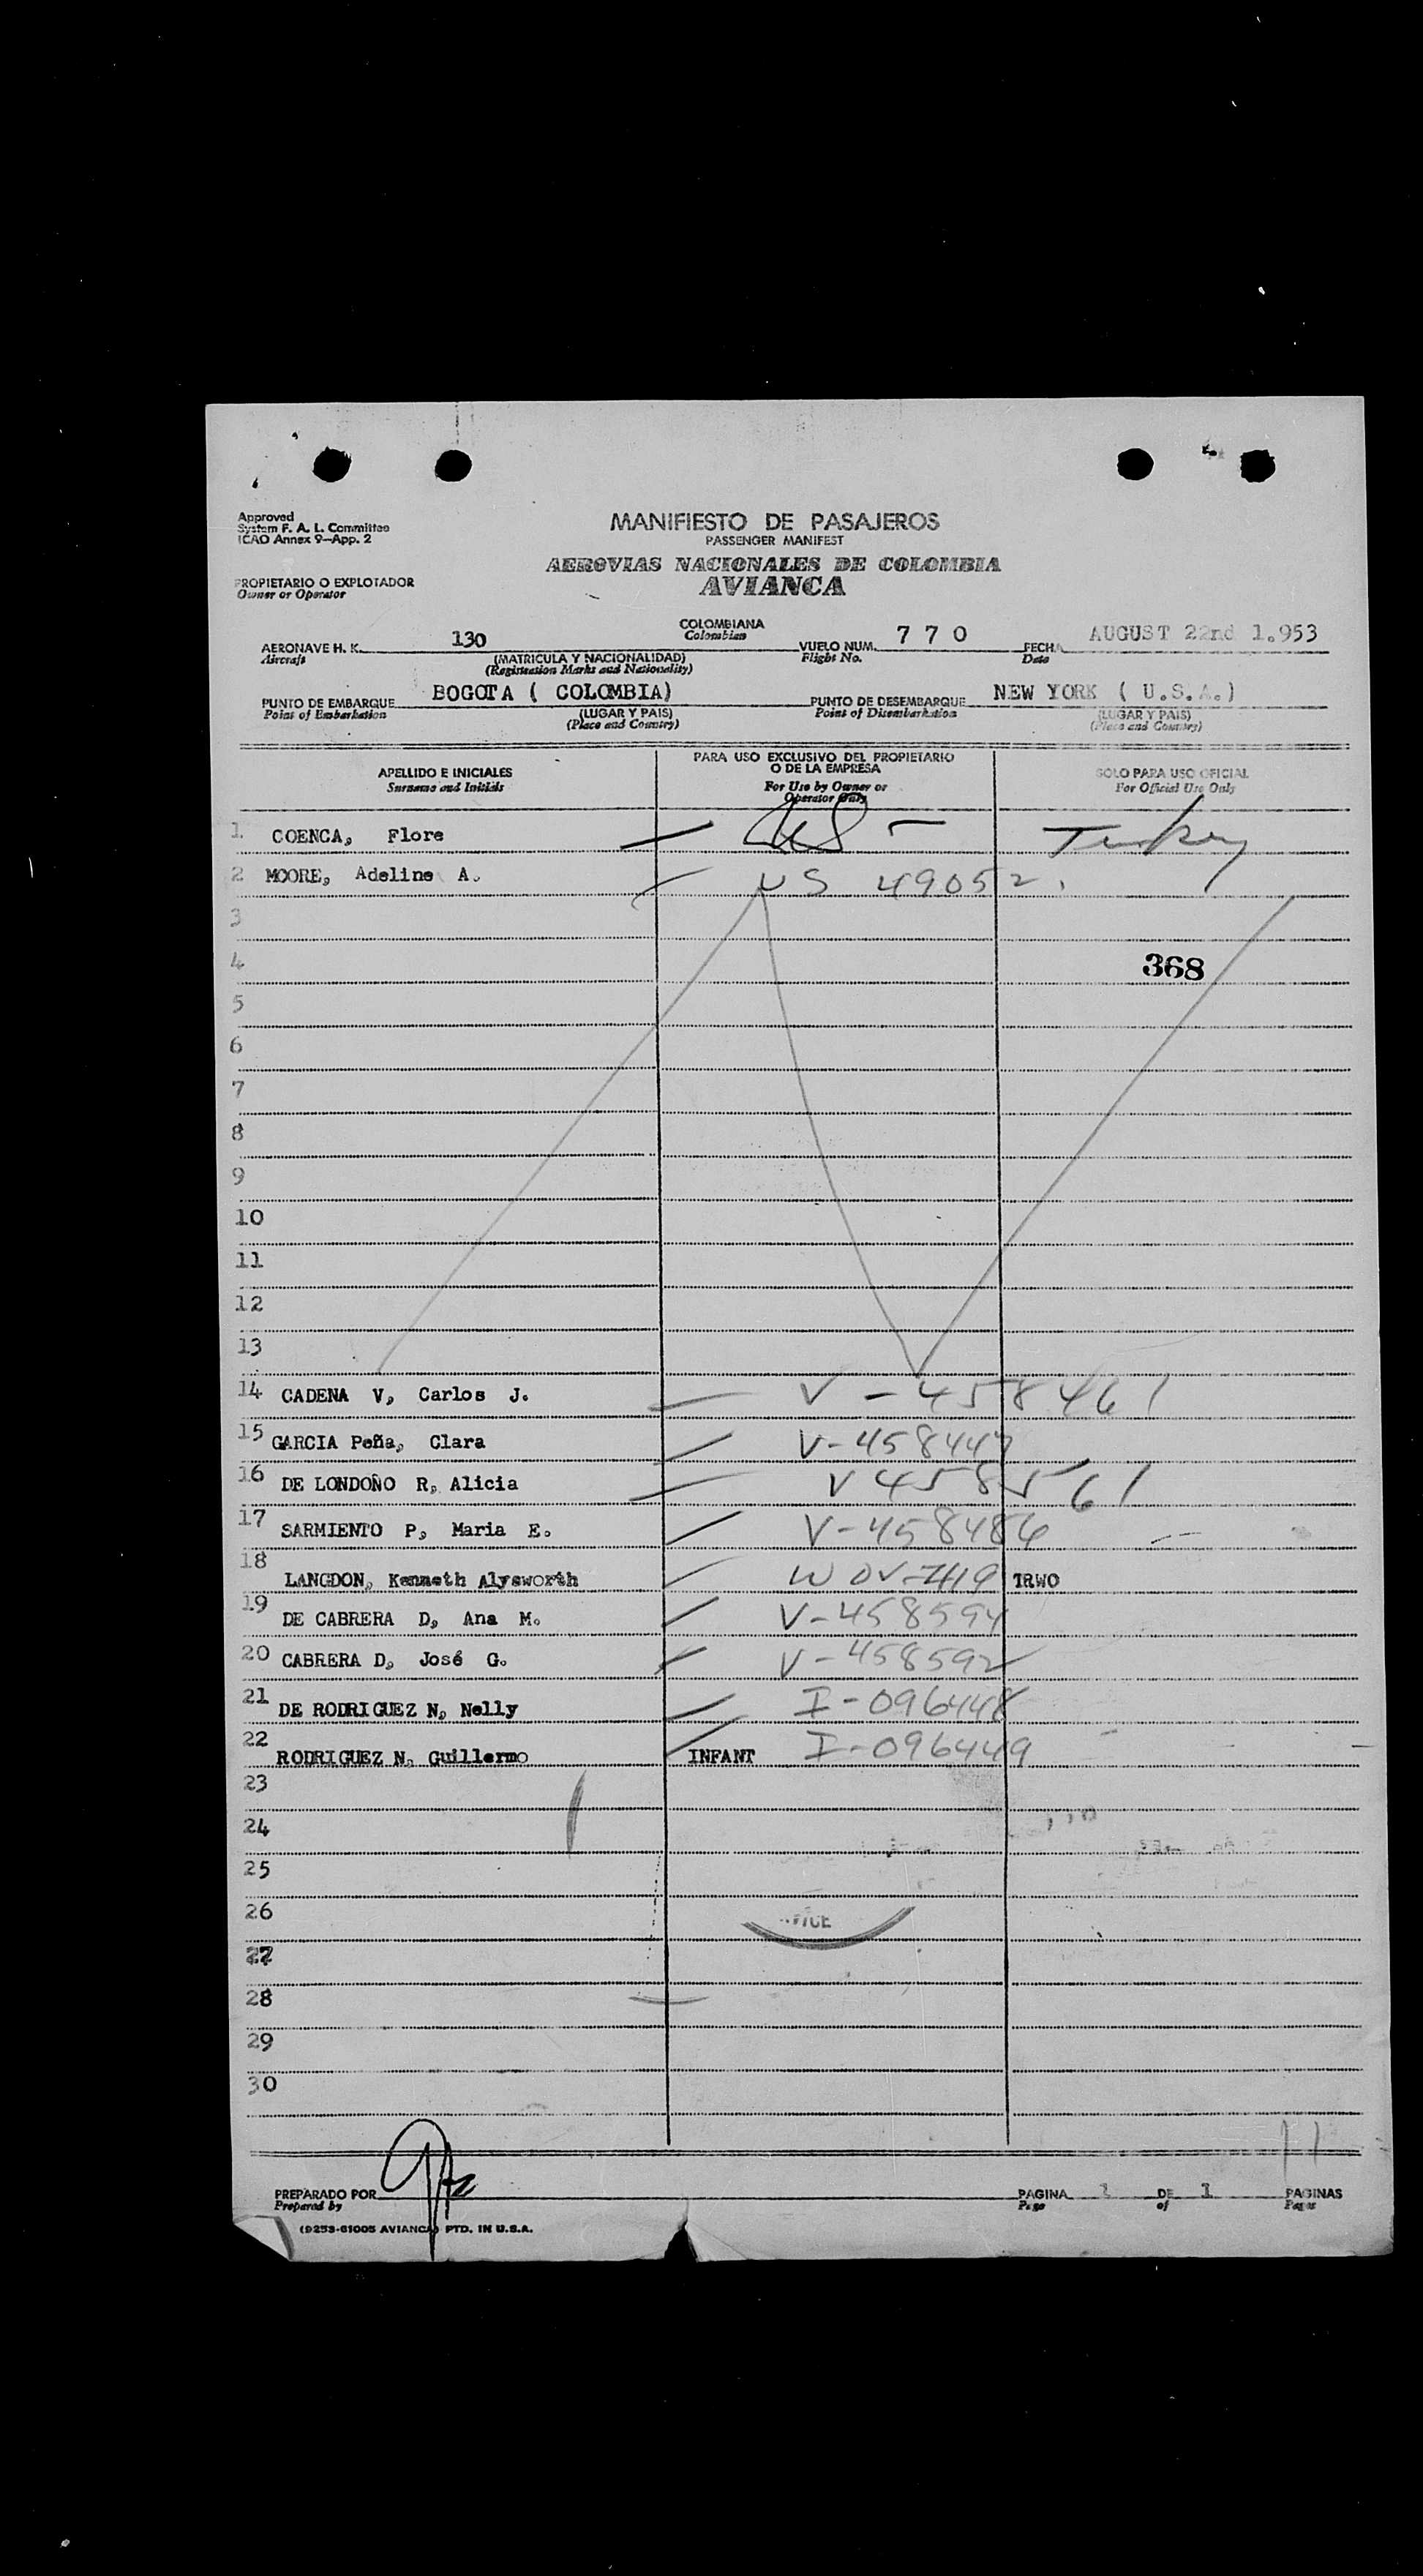 Approved
System F. A. L. Committee
ICAO Annex 9-App. 2
MANIFIESTO DE PASAJEROS
PASSENGER MANIFEST
AEROVIAS NACIONALES DE COLOMBIA
AVIANCA
PROPIETARIO O EXPLOTADOR
Owner or Operator
AERONAVE H. K. 130 COLOMBIANA VUELO NUM. 7 7 0 FECHA AUGUST 22nd 1.953
Aircraft (MATRICULA Y NACIONALIDAD) Colombian Flight No. Date
(Registration Marks and Nationality)
PUNTO DE EMBARQUE BOGOTA ( COLOMBIA) PUNTO DE DESEMBARQUE NEW YORK ( U.S.A.)
Point of Embarkation (LUGAR Y PAIS) Point of Disembarkation (LUGAR Y PAIS)
(Place and Country) (Place and Country)
APELLIDO E INICIALES
Surname and Initials
PARA USO EXCLUSIVO DEL PROPIETARIO
O DE LA EMPRESA
For Use by Owner or
Operator Only
SOLO PARA USO OFICIAL
For Official Use Only
1 COENCA, Flore Turkey
2 MOORE, Adeline A. US 49052
3
4 368
5
6
7
8
9
10
11
12
13
14 CADENA V, Carlos J. V-458461
15 GARCIA Peña, Clara V-458447
16 DE LONDOÑO R, Alicia V458561
17 SARMIENTO P, Maria E. V-458486
18 LANGDON, Kenneth Alysworth TRWO
19 DE CABRERA D, Ana M. V-458594
20 CABRERA D, José G. V-458592
21 DE RODRIGUEZ N, Nelly I-096448
22 RODRIGUEZ N, Guillermo INFANT I-096449
23
24
25
26
27
28
29
30
PREPARADO POR PAGINA 1 DE 1 PAGINAS
Prepared by Page of Pages
(9253-61005 AVIANCA) PTD. IN U.S.A.